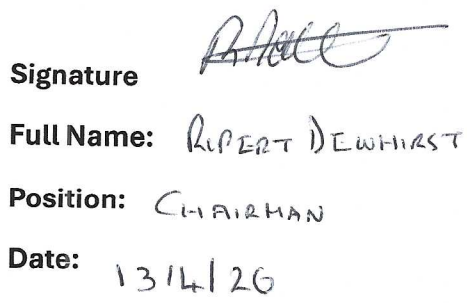 Signature
Full Name: RUPERT DEWHIRST
Position: CHAIRMAN
Date: 13/4/26